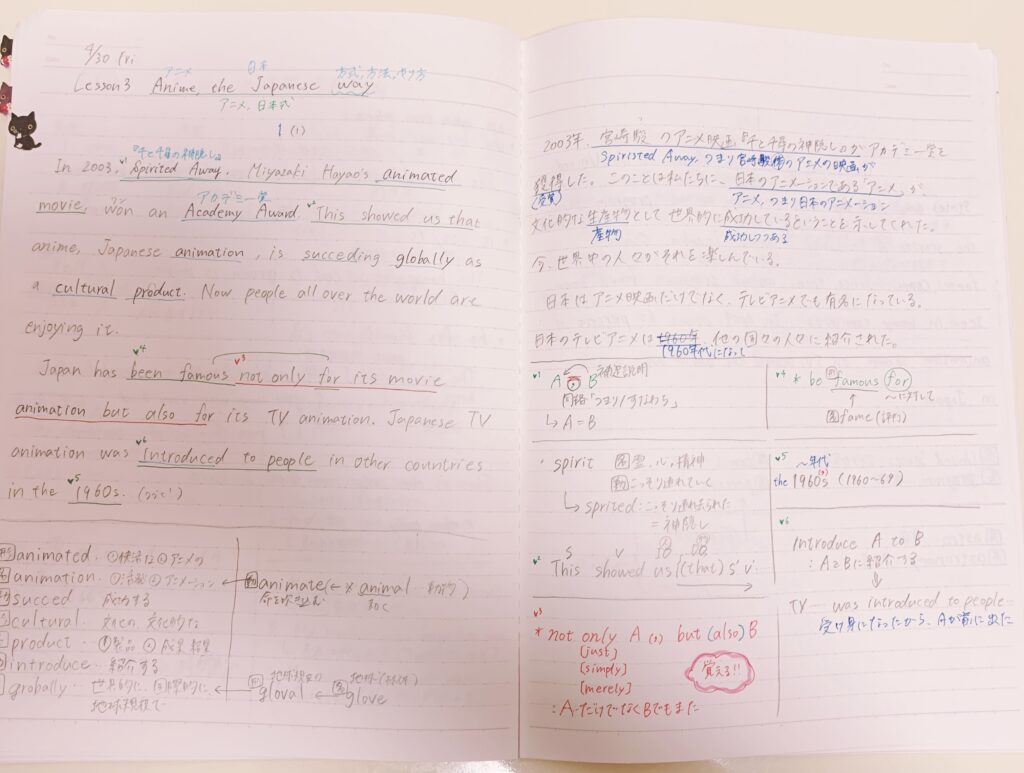 4/30 Fri
アニメ 日本 方式,方法,やり方
Lesson3 Anime, the Japanese way
アニメ,日本式
1 (1)
『千と千尋の神隠し』
In 2003, v1 Spirited Away, Miyazaki Hayao's animated
ワン アカデミー賞
movie, won an Academy Award. v2 This showed us that
anime, Japanese animation, is succeding globally as
a cultural product. Now people all over the world are
enjoying it.
v4 v3
Japan has been famous not only for its movie
animation but also for its TV animation. Japanese TV
v6
animation was introduced to people in other countries
v5
in the 1960s.
animated ①快活な ②アニメの
animation ①活発 ②アニメーション
succed 成功する
cultural 文化の、文化的な
product ①製品 ②成果、結果
introduce 紹介する
grobally 世界的に、国際的に
地球規模で
animate (← × animal 動物)
命を吹き込む
地球規模の
gloval ← glove
2003年、宮崎駿のアニメ映画『千と千尋の神隠し』がアカデミー賞を
Spiristed Away、つまり宮崎駿のアニメの映画が
獲得した。このことは私たちに、日本のアニメーションである「アニメ」が、
(受賞) アニメ、つまり日本のアニメーション
文化的な生産物として世界的に成功しているということを示してくれた。
産物 成功しつつある
今、世界中の人々がそれを楽しんでいる。
日本はアニメ映画だけでなく、テレビアニメでも有名になっている。
日本のテレビアニメは1960年 他の国々の人々に紹介された。
1960年代になって
v1 A , B 補足説明
同格「つまり/すなわち」
↳ A = B
v4 * be famous for
〜に対して
↑
名 fame (評判)
・spirit 名 霊、心、精神
動 こっそり連れていく
↳ sprited: こっそり連れ去られた
= 神隠し
v5 〜年代
the 1960s (1960〜69)
S V IO DO
v2 This showed us (that) S' V'
v6
Introduce A to B
: AをBに紹介する
⇓
TV ... was introduced to people
受け身になったから、Aが前に出た
v3
* not only A (,) but (also) B
[just]
[simply]
[merely]
覚える!!
: AだけでなくBでもまた